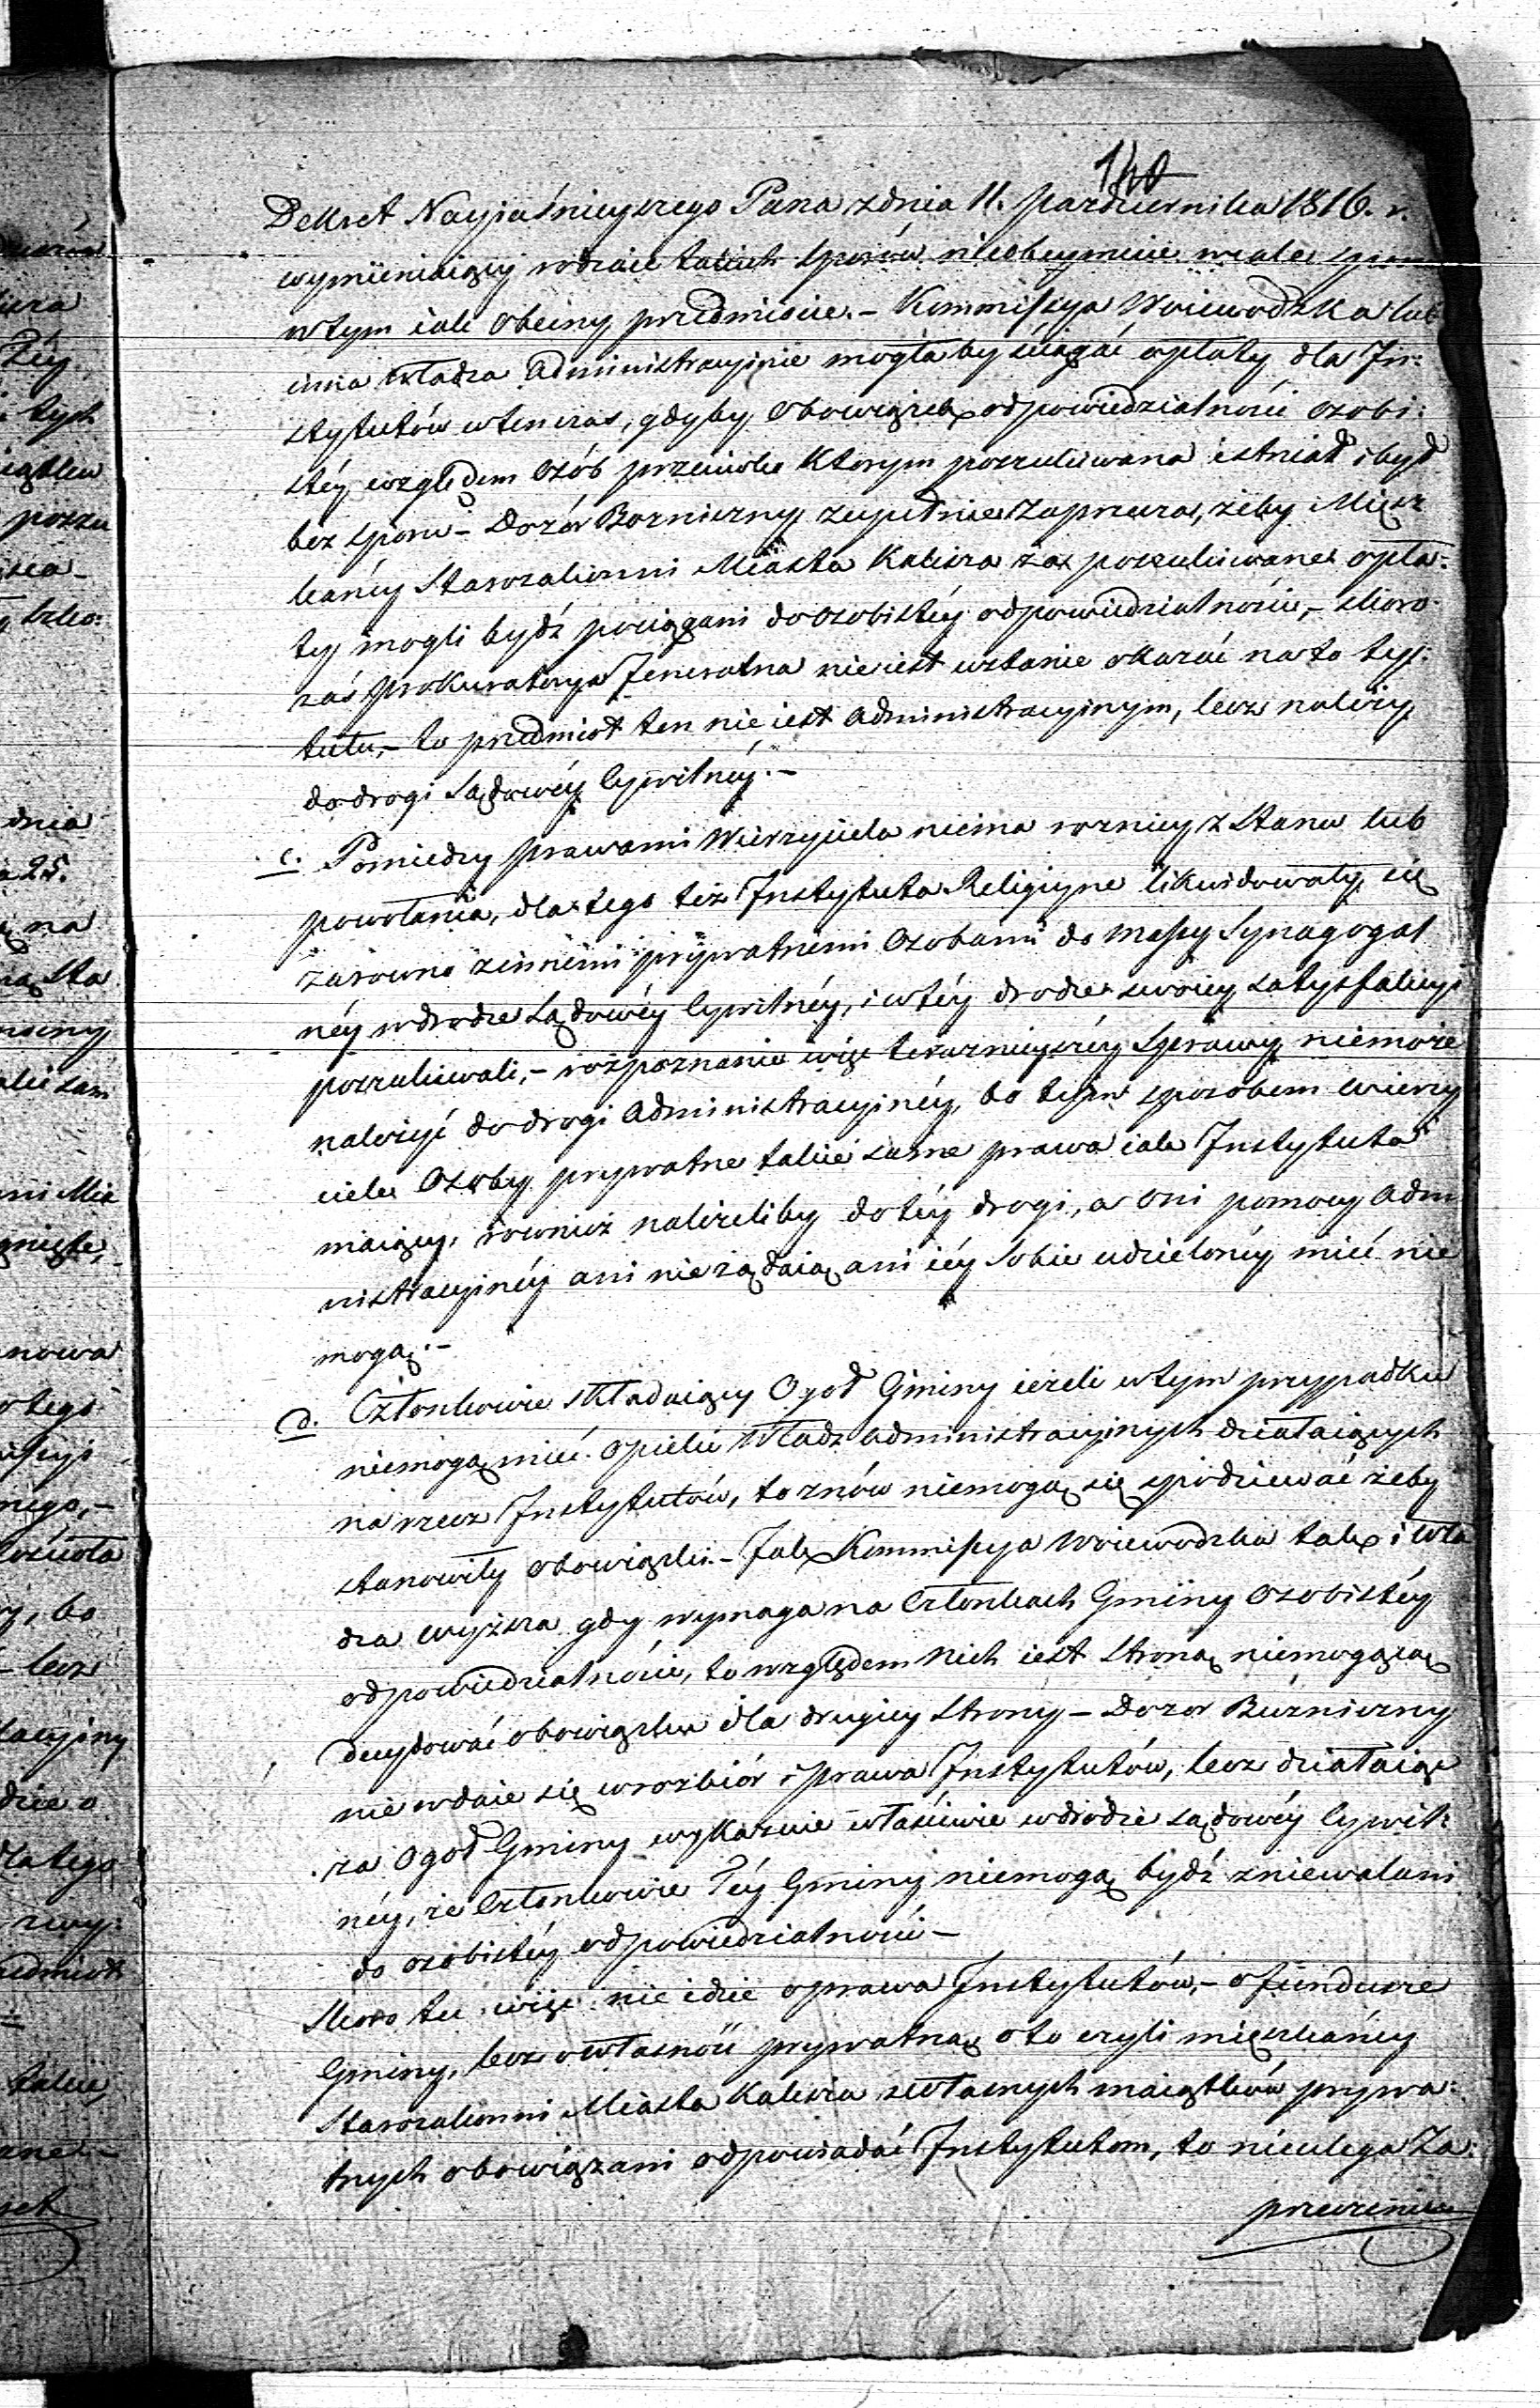 140
Dekret Nayjaśnieyszego Pana z dnia 11. Pazdziernika 1816. r.
wymieniaiący rodzaie takich sporów nieobeymuie wcale sporu
w tym iak obecny przedmiocie. – Kommissya Woiewodzka lub
inna władza Administracyjnie mogłaby ściągać opłaty dla In:
stytutów wtenczas, gdyby obowiązek odpowiedzialności osobi:
stéy względem osób przeciwko którym poszukiwana istniał i był
bez sporu – Dozór Bozniczny zupełnie zaprzecza, żeby Miesz
kańcy Starozakonni Miasta Kalisza za poszukiwane opła:
ty mogli bydź pociągani do osobistéy odpowiedzialności, – skoro
zaś Prokuratorya Jeneralna nie iest w stanie okazać na to tyj:
tułu, – to przedmiot ten nie iest administracyjnym, lecz należy
do drogi Sądowéy Cywilnéy. –
c. Pomiedzy prawami Wierzyciela niema roznicy z stanu lub
powołania, dla tego też Instytuta Religiyne likwidowały się
zarowno z innemi prywatnemi osobami do Massy Synagogal
néy w drodze Sądowéy Cywilnéy, i w téy drodze swoiey satysfakcyi
poszukiwali, – rozpoznanie więc teraznieyszéy sprawy niemoże
należyć do drogi Administracyjnéy, bo tym sposobem wierzy
ciele osoby prywatne takie same prawa iak Instytuta
maiący, rownież należeliby do téy drogi, a oni pomocy Admi
nistracyjnéy ani nie żądaią ani iéy sobie udzielonéy mieć nie
mogą. –
d. Członkowie składaiący Ogoł Gminy ieżeli w tym przypadku
niemogą mieć opieki Władz administracyjnych działaiących
na rzecz Instytutów, to znów niemogą się spodziewać żeby
stanowiły obowiązki. – Jak Kommissya Woiewodzka tak i Wła
dza wyższa gdy wymaga na Członkach Gminy osobistéy
odpowiedzialności, to względem nich iest stroną niemogącą
decydować obowiązku dla drugiey strony – Dozor Bużniczny
nie wdaie się w rozbiór prawa Instytutów, lecz działaiąc
za Ogoł Gminy wykazuie właściwie w drodze sądowéy Cywil:
néy, że Członkowie Téy Gminy niemogą bydź zniewalani
do osobistéy odpowiedzialności –
Skoro tu więc nie idzie o prawa Instytutów, – o fundusze
Gminy, lecz o własność prywatną o to czyli mięszkańcy
Starozakonni Miasta Kalisza z własnych maiątków prywa:
tnych obowiązani odpowiadać Instytutom, to nieulega Za:
przeczeniu